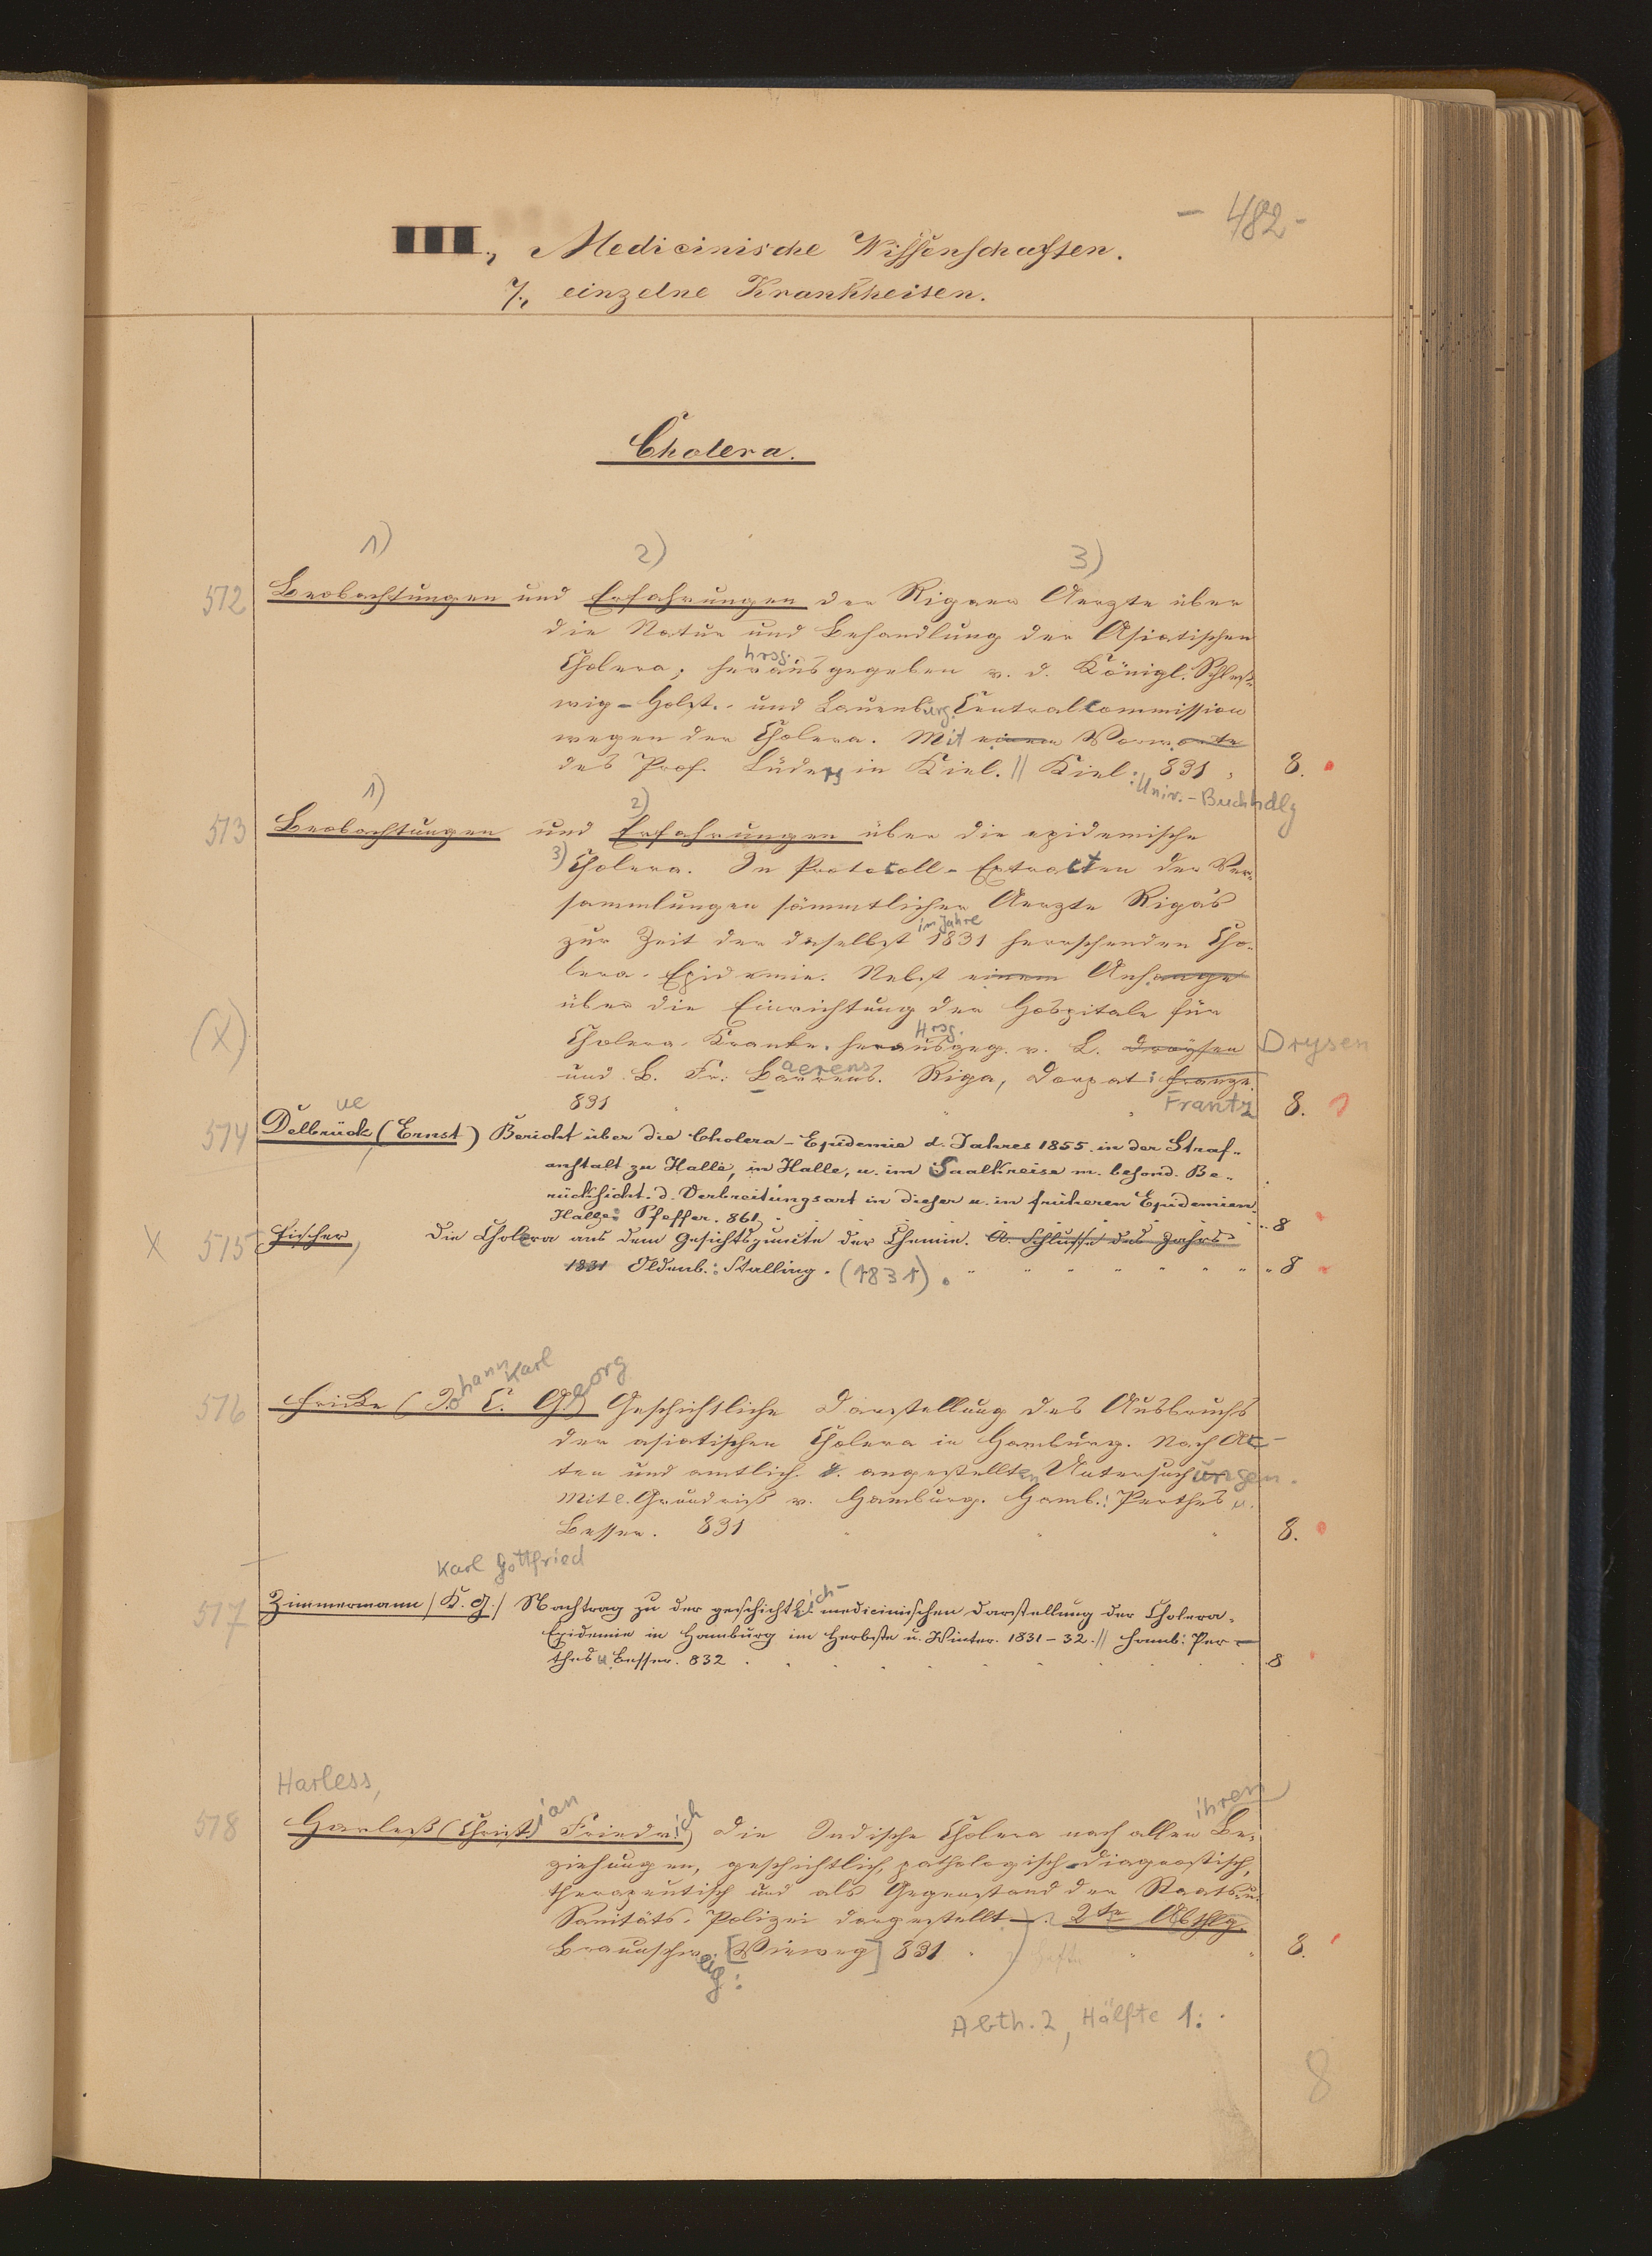 - 482 -
III., Medicinische Wissenschaften.
7., einzelne Krankheiten.
Cholera.
1) 2) 3)
572 Beobachtungen und Erfahrungen der Rigaer Aerzte über
die Natur und Behandlung der Asiatischen
hrsg.
Cholera; herausgegeben v. d. Königl. Schleß-
wig-Holst.- und Lauenburg. Centralcommission
wegen der Cholera. Mit einem Vorworte
des Prof. Lüders in Kiel. // Kiel: 831 8.
Univ.-Buchhdlg
1) 2)
573 Beobachtungen und Erfahrungen über die epidemische
3) Cholera. In Protocoll-Extracten der Ver-
sammlungen sämmtlicher Aerzte Riga's
im Jahre
zur Zeit der daselbst 1831 herrschenden Cho-
lera-Epidemie. Nebst einem Anhange
über die Einrichtung der Hospitale für
(X) Hrsg.
Cholera-Kranke. herausgeg. v. L. Droysen Drysen
aerens
und B. Fr. Barrens. Riga, Dorpat: Franze.
831 Frantz 8.
ue
574 Delbrück (Ernst) Bericht über die Cholera-Epidemie d. Jahres 1855 in der Straf-
anstalt zu Halle, in Halle, u. im Saalkreise m. besond. Be-
rücksicht. d. Verbreitungsart in dieser u. in früheren Epidemien.
Halle: Pfeffer. 861. 8
X 575 Fischer, Die Cholera aus dem Gesichtspuncte der Chemie. A. Schlusse des Jahrs
1831 Oldenb.: Stalling. (1831). 8
ohann Karl eorg
576 Fricke (J. C. G.) Geschichtliche Darstellung des Ausbruchs
der asiatischen Cholera in Hamburg. Nach Ac-
ten und amtlich. angestellten Untersuchungen.
Mit e. Grundriß v. Hamburg. Hamb.: Perthes u.
Besser. 831 8.
Karl Gottfried
577 Zimmermann (K. G.) Nachtrag zu der geschichtlich-medicinischen Darstellung der Cholera-
Epidemie in Hamburg im Herbste u. Winter. 1831-32. // Hamb: Per-
thes u. Besser. 832 8
Harless,
ian ich ihren
578 Harleß (Christ. Friedr.) Die Indische Cholera nach allen Be-
ziehungen, geschichtlich, pathologisch-diagnostisch,
therapeutisch und als Gegenstand der Staats- u.
Sanitäts-Polizei dargestellt. 2te Abthlg.
Braunschweig: [Vieweg] 831 8.
Abth. 2, Hälfte 1.
8